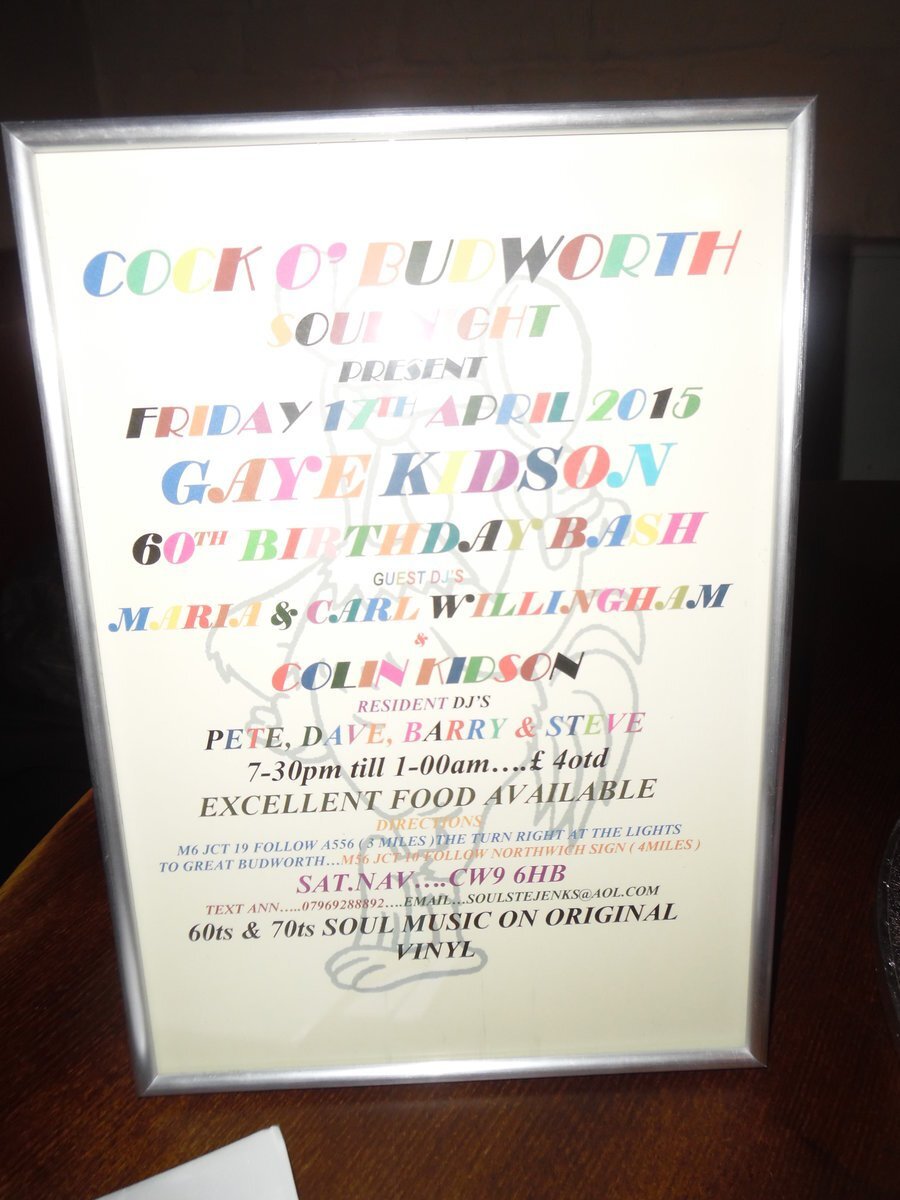 COCK O' BUDWORTH
SOUL NIGHT
PRESENT
FRIDAY 17TH APRIL 2015
GAYE KIDSON
60TH BIRTHDAY BASH
GUEST DJ'S
MARIA & CARL WILLINGHAM
&
COLIN KIDSON
RESIDENT DJ'S
PETE, DAVE, BARRY & STEVE
7-30pm till 1-00am....£ 4otd
EXCELLENT FOOD AVAILABLE
DIRECTIONS
M6 JCT 19 FOLLOW A556 ( 3 MILES )THE TURN RIGHT AT THE LIGHTS
TO GREAT BUDWORTH...M56 JCT 10 FOLLOW NORTHWICH SIGN ( 4MILES )
SAT.NAV....CW9 6HB
TEXT ANN.....07969288892....EMAIL...SOULSTEJENKS@AOL.COM
60ts & 70ts SOUL MUSIC ON ORIGINAL
VINYL